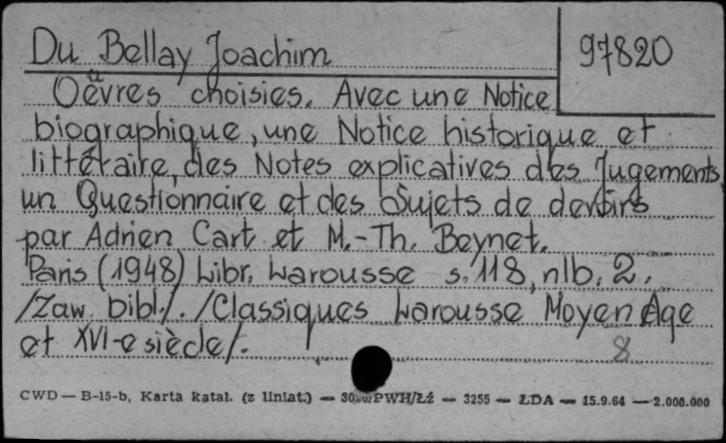 Du Bellay Joachim
97820
Oëvres choisies. Avec une Notice
biographique, une Notice historique et
littéraire, des Notes explicatives des Jugements,
un Questionnaire et des Sujets de devoirs
par Adrien Cart et M.-Th. Beynet.
Paris (1948) Libr. Larousse s. 118, nlb. 2.
/Zaw. bibl./. /Classiques Larousse Moyen Age
et XVI-e siècle/.
8
CWD — B-15-b, Karta katal. (z liniat.) — PWH/Łź — 3255 — ŁDA — 15.9.64 — 2.000.000